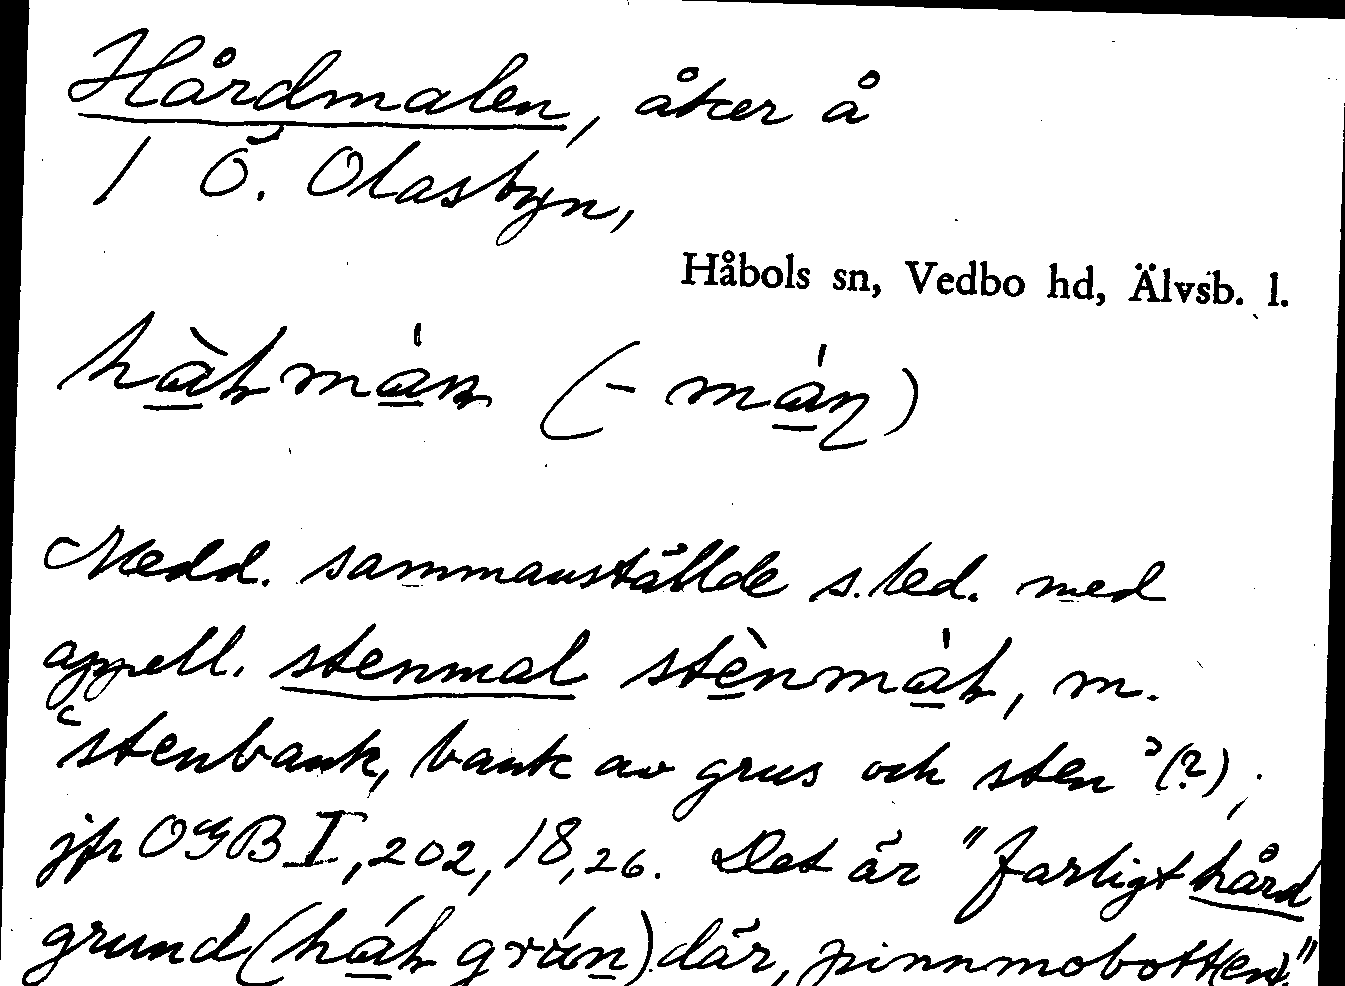 Hårdmalen, åker å
1 Ö. Olasbyn,
Håbols sn, Vedbo hd, Älvsb. l.
Medd. sammanställde s.led. med
appell. stenmal stènmàɫ, m.
‘stenbank, bank av grus och sten’(?);
jfr OGB I, 202, 18, 26. Det är "farligt hård
grund (håɫ grún) där, pinnmobott(en)."